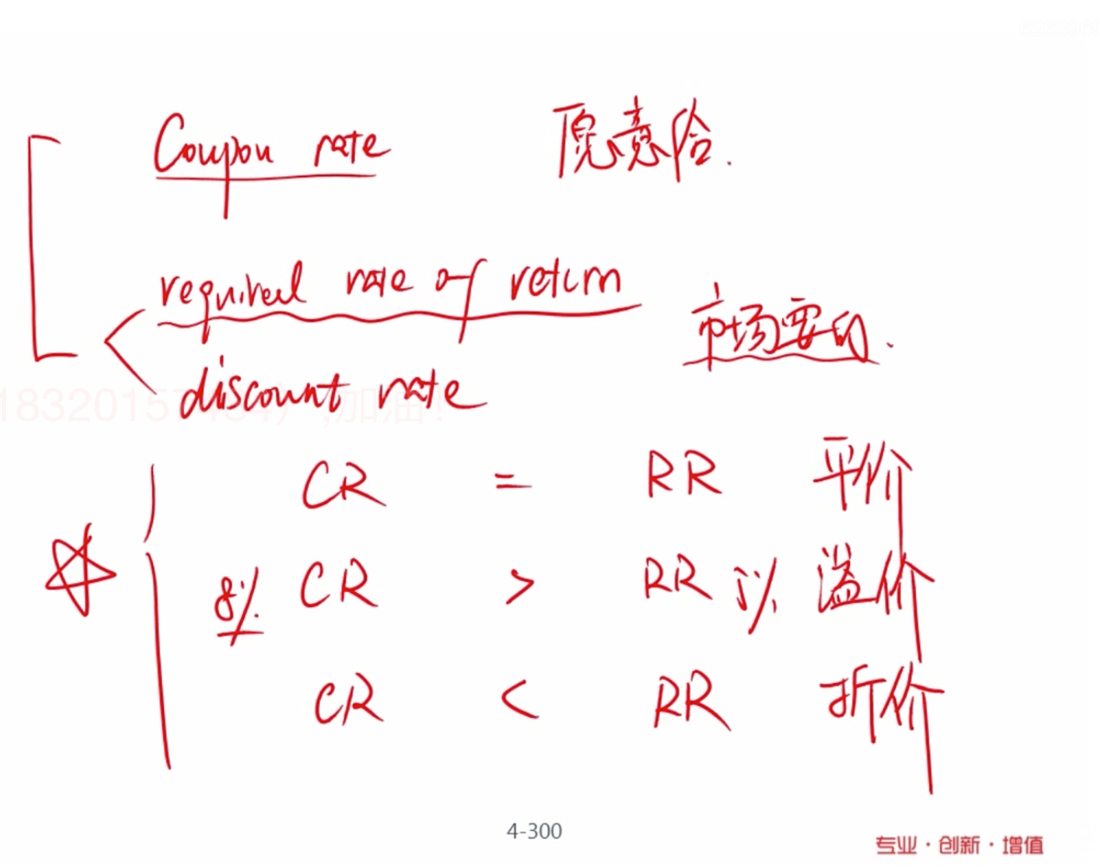 Coupon rate 愿意给.
required rate of return 市场要的.
discount rate
CR = RR 平价
8% CR > RR 5% 溢价
CR < RR 折价
4-300
专业·创新·增值